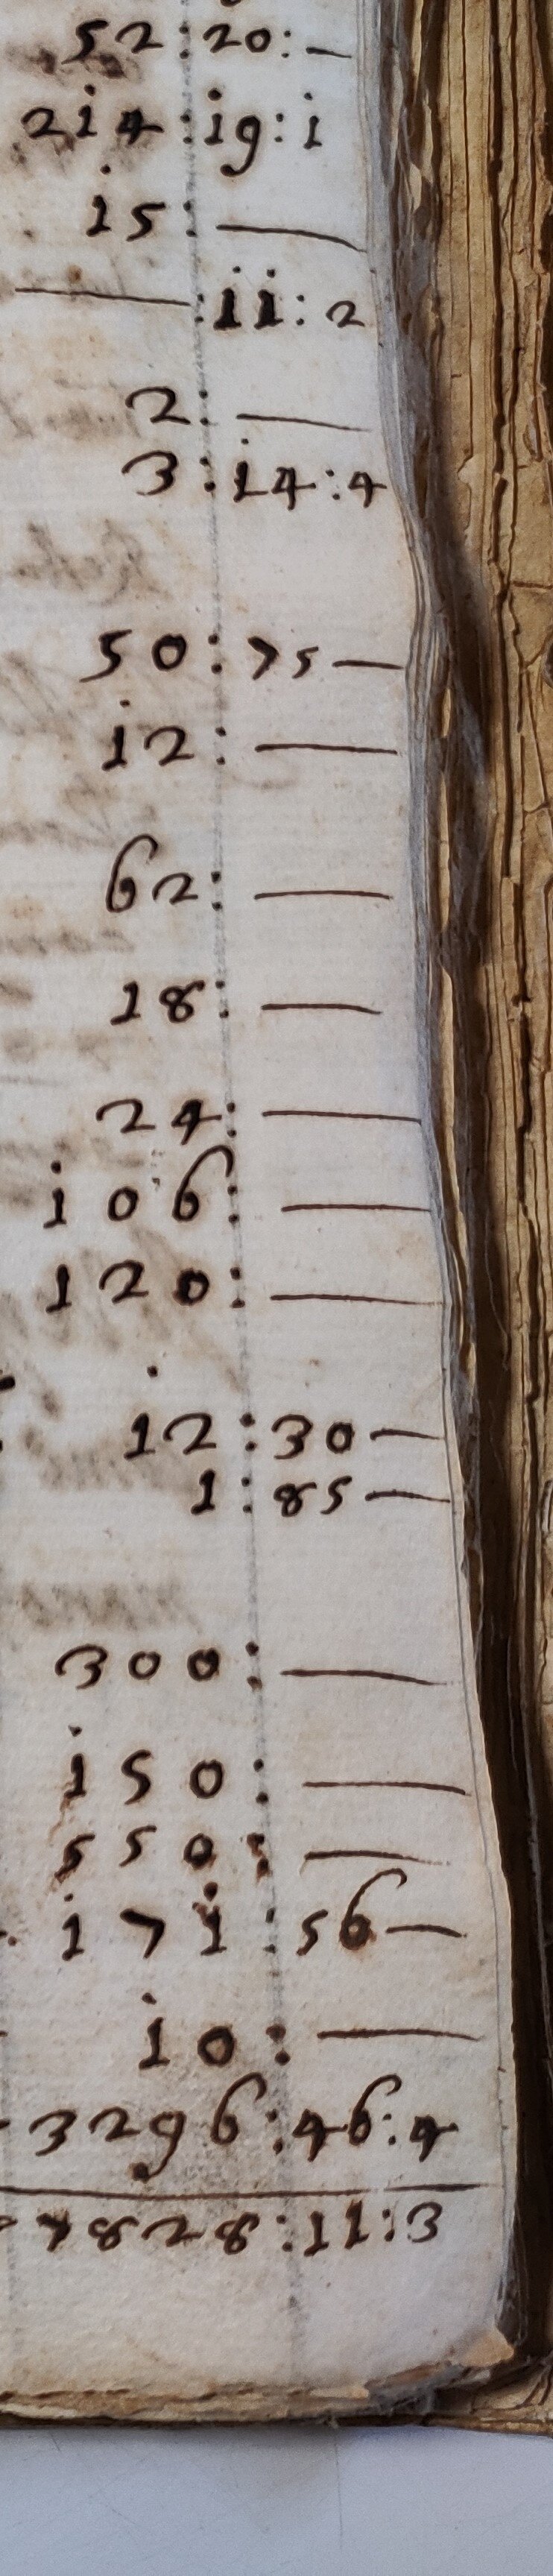 52:20:—
214:19:1
15:—
—:11:2
2:—
3:14:4
50:75—
12:—
62:—
18:—
24:—
106:—
120:—
12:30—
1:85—
300:—
150:—
550:—
171:56—
10:—
3296:46:4
8284:11:3